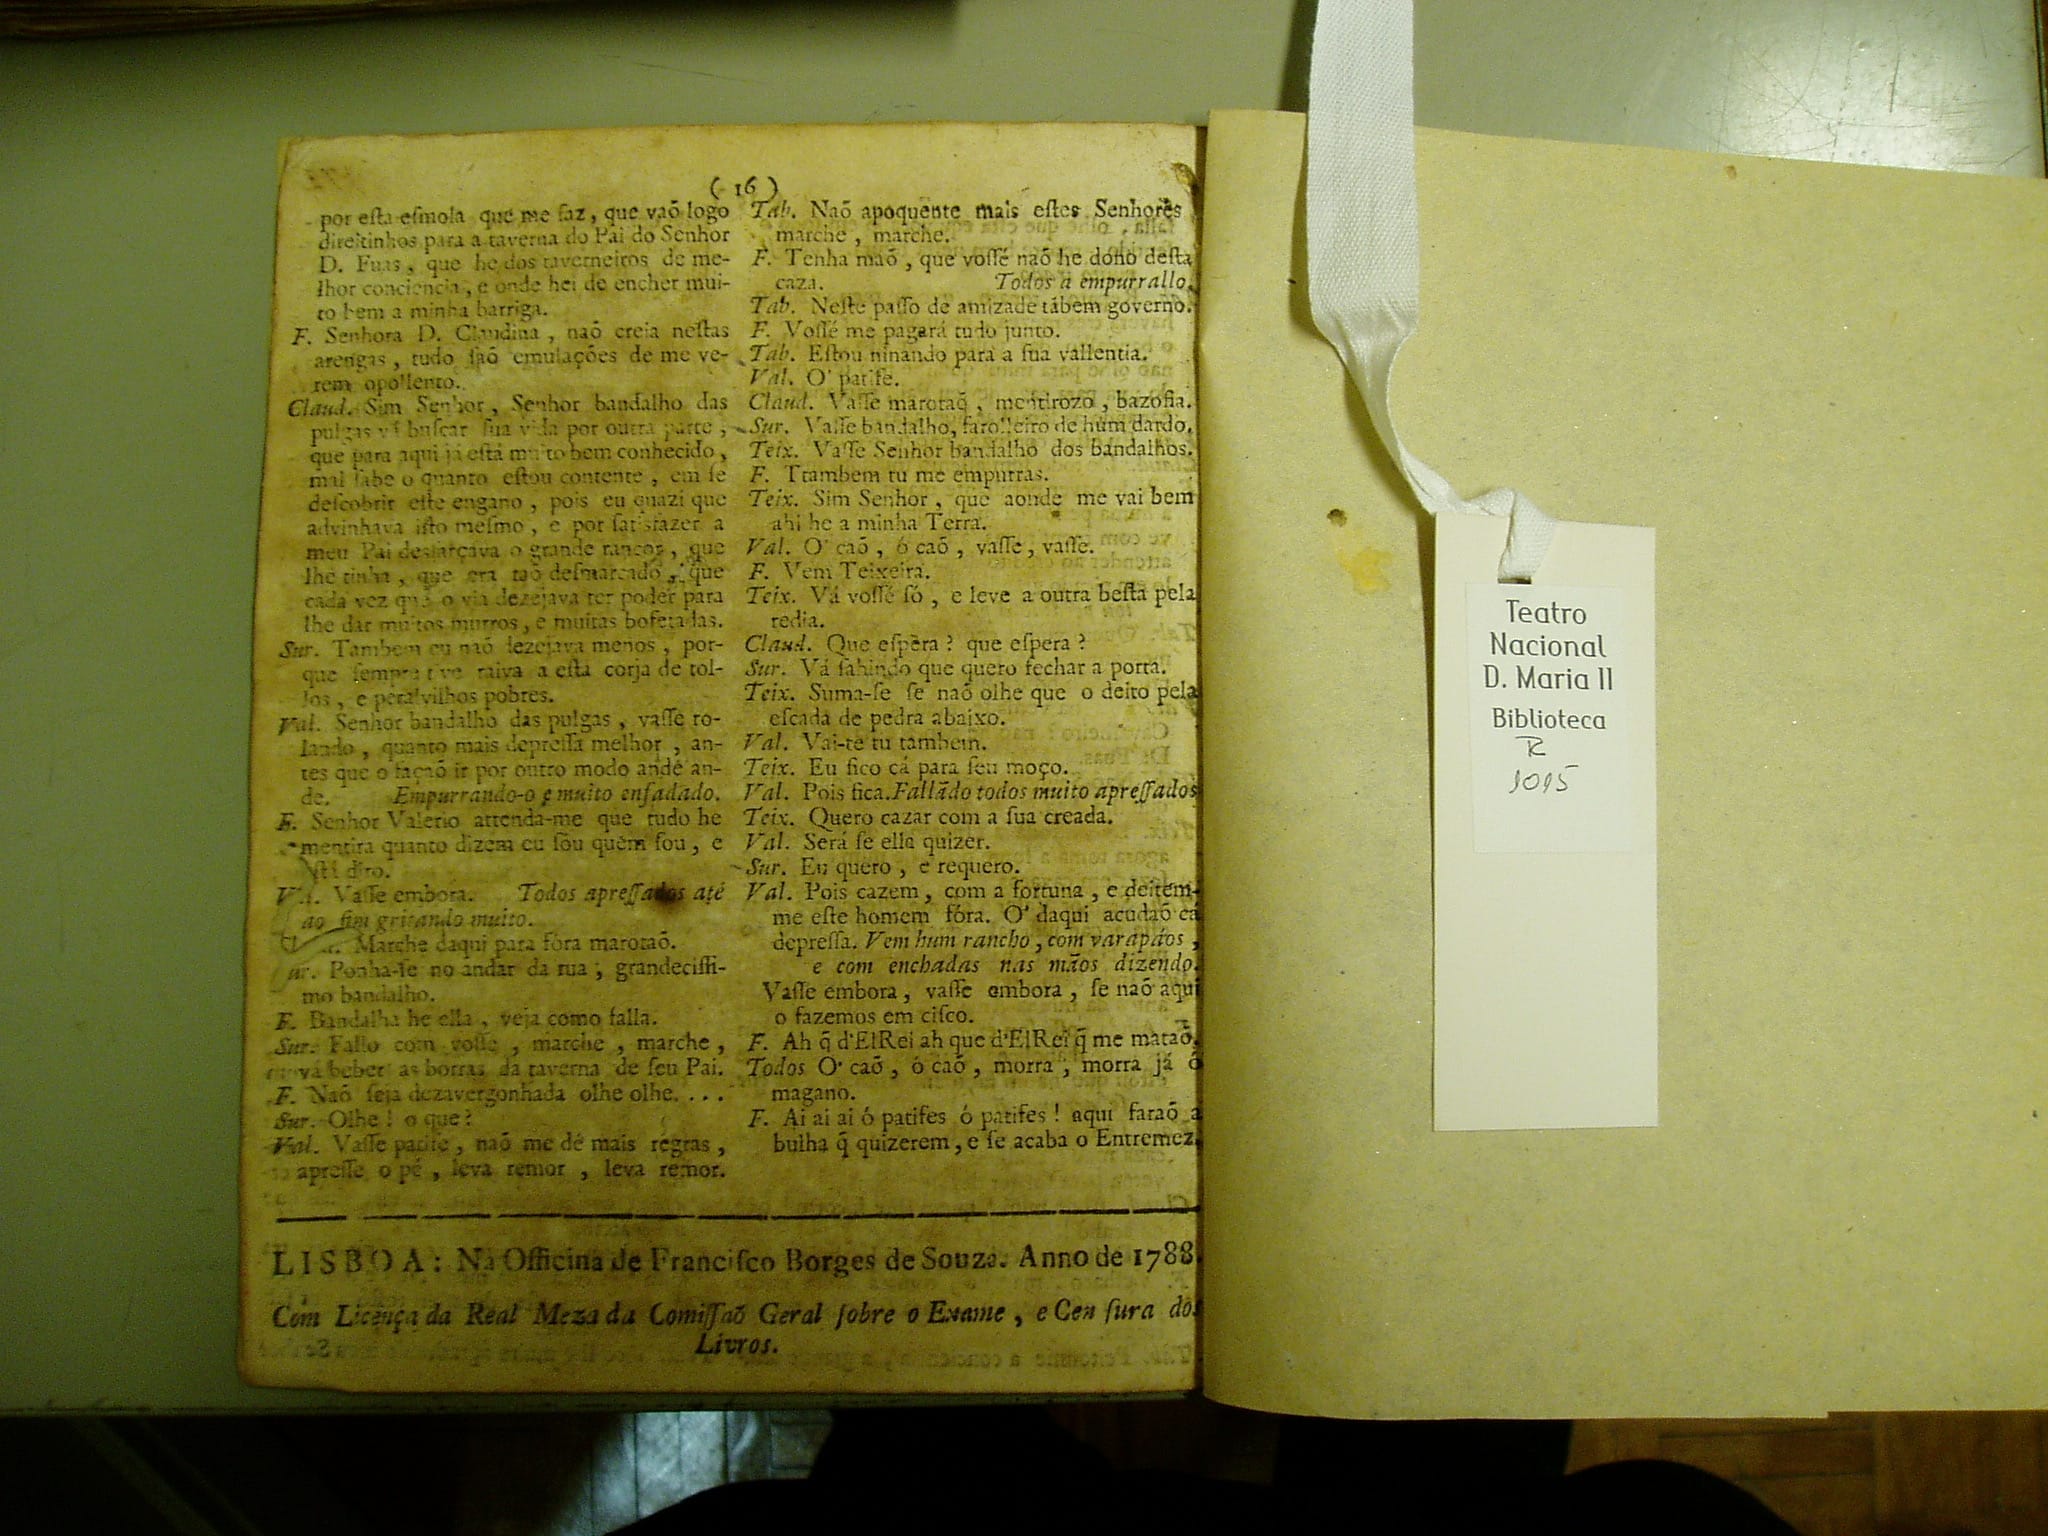 ( 16 )
por eſta eſmola que me faz, que vaõ logo
direitinhos para a taverna do Pai do Senhor
D. Fuas, que he dos taverneiros de me-
lhor conciencia, e onde hei de encher mui-
to bem a minha barriga.
F. Senhora D. Claudina, naõ creia neſtas
arengas, tudo ſaõ emulações de me ve-
rem opollento.
Claud. Sim Senhor, Senhor bandalho das
pulgas vá buſcar ſua vida por outra parte,
que para aqui já eſtá muito bem conhecido,
mal ſabe o quanto eſtou contente, em ſe
deſcobrir eſte engano, pois eu quazi que
advinhava iſto meſmo, e por ſatisfazer a
meu Pai desfarçava o grande rancor, que
lhe tinha, que era taõ deſmarcado, que
cada vez que o via dezejava ter poder para
lhe dar muitos murros, e muitas bofetadas.
Sur. Tambem eu naõ dezejava menos, por-
que ſempre tive raiva a eſta corja de tol-
los, e peralvilhos pobres.
Val. Senhor bandalho das pulgas, vaſſe ro-
lando, quanto mais depreſſa melhor, an-
tes que o façaõ ir por outro modo ande an-
de. Empurrando-o e muito enfadado.
F. Senhor Valerio attenda-me que tudo he
mentira quanto dizem eu ſou quem ſou, e
eſtá dito.
Val. Vaſſe embora. Todos apreſſados até
ao fim gritando muito.
Marche daqui para fóra marotaõ.
Sur. Ponha-ſe no andar da rua, grandeciſſi-
mo bandalho.
F. Bandalha he ella, veja como falla.
Sur. Fallo com voſſe, marche, marche,
vá beber as borras da taverna de ſeu Pai.
F. Naõ ſeja dezavergonhada olhe olhe. . . .
Sur. Olhe! o que?
Val. Vaſſe patife, naõ me dê mais regras,
apreſſe o pé, leva remor, leva remor.
Tab. Naõ apoquente mais eſtes Senhores
marche, marche.
F. Tenha maõ, que voſſé naõ he dono deſta
caza. Todos a empurrallo.
Tab. Neſte paſſo de amizade tãbem governo.
F. Voſſé me pagará tudo junto.
Tab. Eſtou ninando para a ſua vallentia.
Val. O' patife.
Claud. Vaſſe marotaõ, mentirozo, bazofia.
Sur. Vaſſe bandalho, farolleiro de hum dardo.
Teix. Vaſſe Senhor bandalho dos bandalhos.
F. Ttambem tu me empurras.
Teix. Sim Senhor, que aonde me vai bem
ahi he a minha Terra.
Val. O' caõ, ó caõ, vaſſe, vaſſe.
F. Vem Teixeira.
Teix. Vá voſſé ſó, e leve a outra beſta pela
redia.
Claud. Que eſpèra? que eſpera?
Sur. Vá ſahindo que quero fechar a porta.
Teix. Suma-ſe ſe naõ olhe que o deito pela
eſcada de pedra abaixo.
Val. Vai-te tu tambem.
Teix. Eu fico cá para ſeu moço.
Val. Pois fica. Fallãdo todos muito apreſſados
Teix. Quero cazar com a ſua creada.
Val. Será ſe ella quizer.
Sur. Eu quero, e requero.
Val. Pois cazem, com a fortuna, e deitem-
me eſte homem fóra. O' daqui acudaõ cá
depreſſa. Vem hum rancho, com varapáos,
e com enchadas nas mãos dizendo.
Vaſſe embora, vaſſe embora, ſe naõ aqui
o fazemos em ciſco.
F. Ah q̃ d'ElRei ah que d'ElRei q̃ me mataõ.
Todos O' caõ, ó caõ, morra, morra já ó
magano.
F. Ai ai ai ó patifes ó patifes! aqui faraõ a
bulha q̃ quizerem, e ſe acaba o Entremez.
LISBOA: Na Officina de Franciſco Borges de Souza. Anno de 1788.
Com Licença da Real Meza da Comiſſaõ Geral ſobre o Exame, e Cenſura dos
Livros.
Teatro
Nacional
D. Maria II
Biblioteca
R
1015